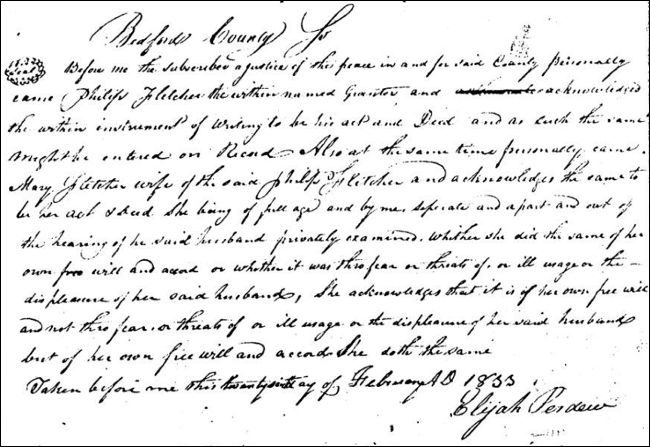 Bedford County Ss
Seal
Before me the subscriber a justice of the peace in and for said County personally
came Philip Fletcher the within named Grantor, and acknowledged
the within instrument of writing to be his act and Deed and as such the same
might be entered on Record Also at the same time personally came
Mary Fletcher wife of the said Philip Fletcher and acknowledges the same to
be her act & Deed She being of full age and by me seperate and apart and out of
the hearing of he said husband privately examined. Whether she did the same of her
own free will and accord or whether it was thro fear or threats of. or ill usage or the
displeasure of her said husband, She acknowledges that it is of her own free will
and not thro fear. or threats of or ill usage or the displeasure of her said husband
but of her own free will and accord She doth the same
Taken before me this day of February AD 1833
Elijah Perdew